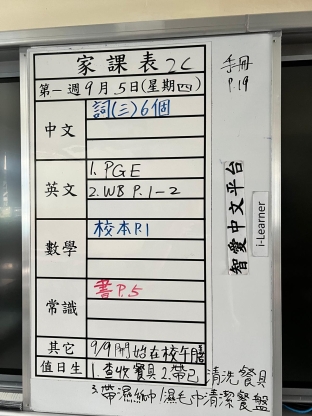 家課表 2C
手冊
P.19
第一週 9月5日(星期四)
中文
詞(三)6個
英文
1. PGE
2. WB P.1-2
數學
校本P.1
常識
書P.5
其它
9/9開始在校午膳
值日生
1. 查收餐具 2. 帶已清洗餐具
3. 帶濕紙巾/濕毛巾清潔餐盤
智愛中文平台
i-Learner